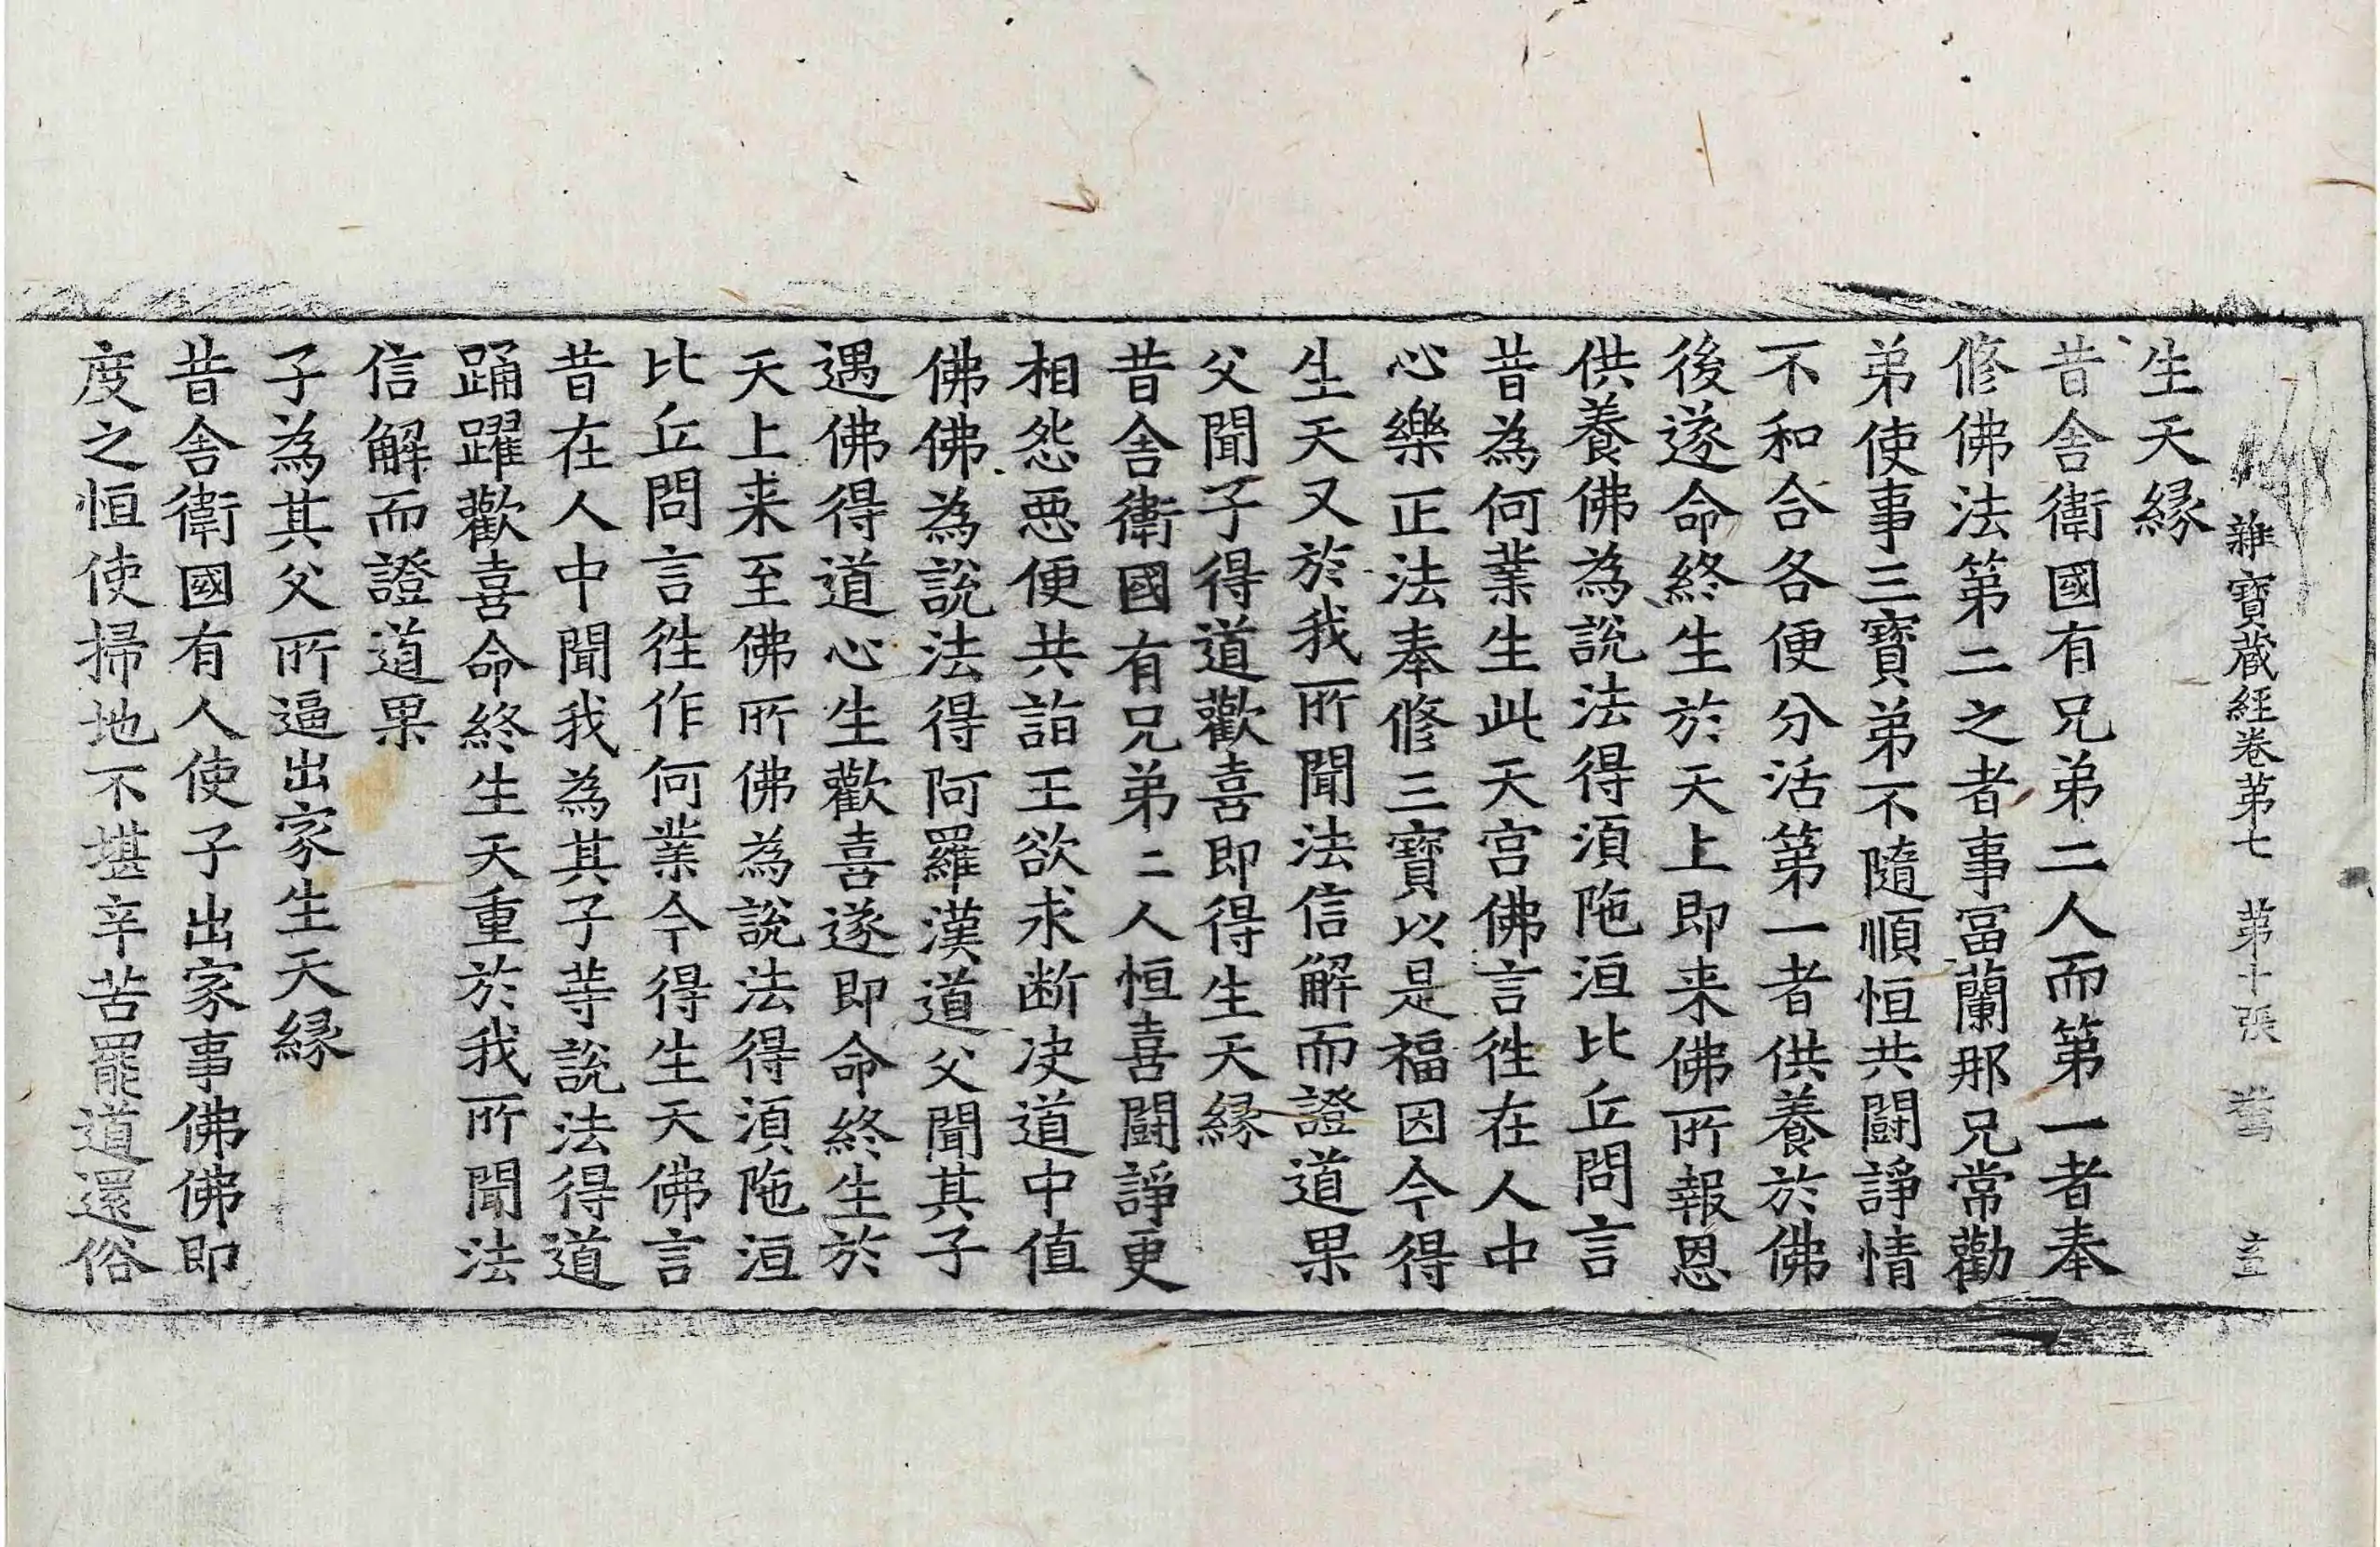 雜寶藏經卷第七 第十張 鷲
生天緣
昔舍衛國有兄弟二人而第一者奉
修佛法第二之者事富蘭那兄常勸
弟使事三寶弟不隨順恒共鬪諍情
不和合各便分活第一者供養於佛
後遂命終生於天上即来佛所報恩
供養佛為說法得須陁洹比丘問言
昔為何業生此天宮佛言徃在人中
心樂正法奉修三寶以是福因今得
生天又於我所聞法信解而證道果
父聞子得道歡喜即得生天緣
昔舍衛國有兄弟二人恒喜鬪諍更
相怨惡便共詣王欲求断决道中值
佛佛為說法得阿羅漢道父聞其子
遇佛得道心生歡喜遂即命終生於
天上来至佛所佛為說法得須陁洹
比丘問言徃作何業今得生天佛言
昔在人中聞我為其子等說法得道
踊躍歡喜命終生天重於我所聞法
信解而證道果
子為其父所逼出家生天緣
昔舍衛國有人使子出家事佛佛即
度之恒使掃地不堪辛苦罷道還俗